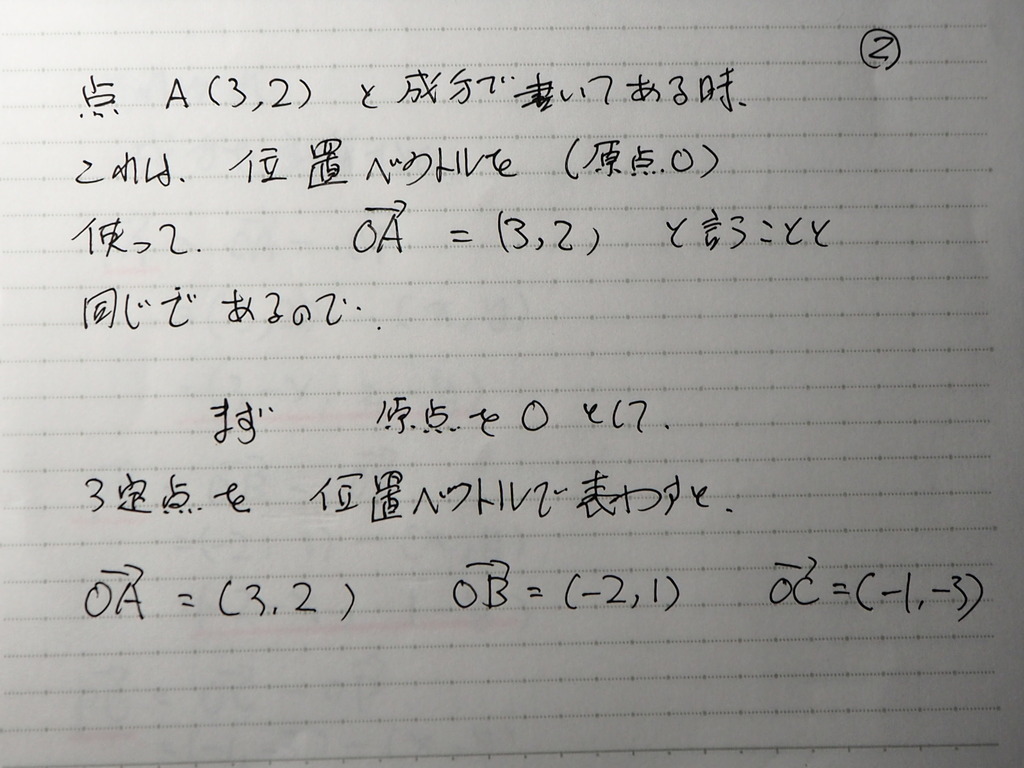 ②
点 A(3,2) と成分で書いてある時、
これは、位置ベクトルを (原点O)
使って、 $\overrightarrow{OA}$ = (3,2) と言うことと
同じであるので、
まず 原点をOとして、
3定点を 位置ベクトルで表わすと、
$\overrightarrow{OA}$ = (3,2) $\overrightarrow{OB}$ = (-2,1) $\overrightarrow{OC}$ = (-1,-3)